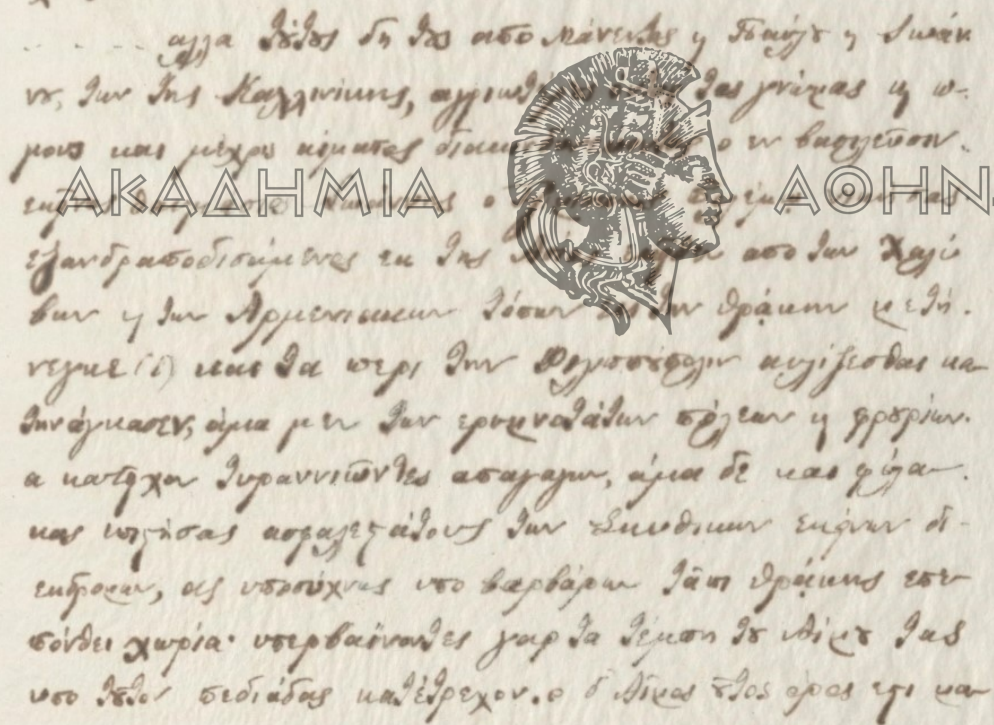 αλλα τούτους δη τους απο Μάνεντος η Παύλου η Ιωάν
νου, των της Καλλινίκης, αγριωτέρους τας γνώμας η ω-
μους και μέχρι αίματος ο εν βασιλεύσιν
ΑΚΑΔΗΜΙΑ ΑΘΗΝ
εξανδραποδισάμενος εκ της απο των Χαλύ
βων η των Αρμενιακων τόπων εις την Θράκην μετή-
νεγκε (1) και τα περι την Φιλιππούπολιν αυλίζεσθαι κα
τηνάγκασεν, άμα μεν των ερυμνοτάτων πόλεων η φρουρίων
α κατείχον τυραννιώντες απαγαγων, άμα δε και φύλα-
κας επιστήσας ασφαλεστάτους των Σκυθικων εκείνων δι-
εκδρομων, ας υποσύχνας υπο βαρβάρων τάπι Θράκης επε
πόνθει χωρία· υπερβαίνοντες γαρ τα τέμπη του Αίμου τας
υπο τούτον πεδιάδας κατέτρεχον. ο δ' Αίμος ούτος όρος επι